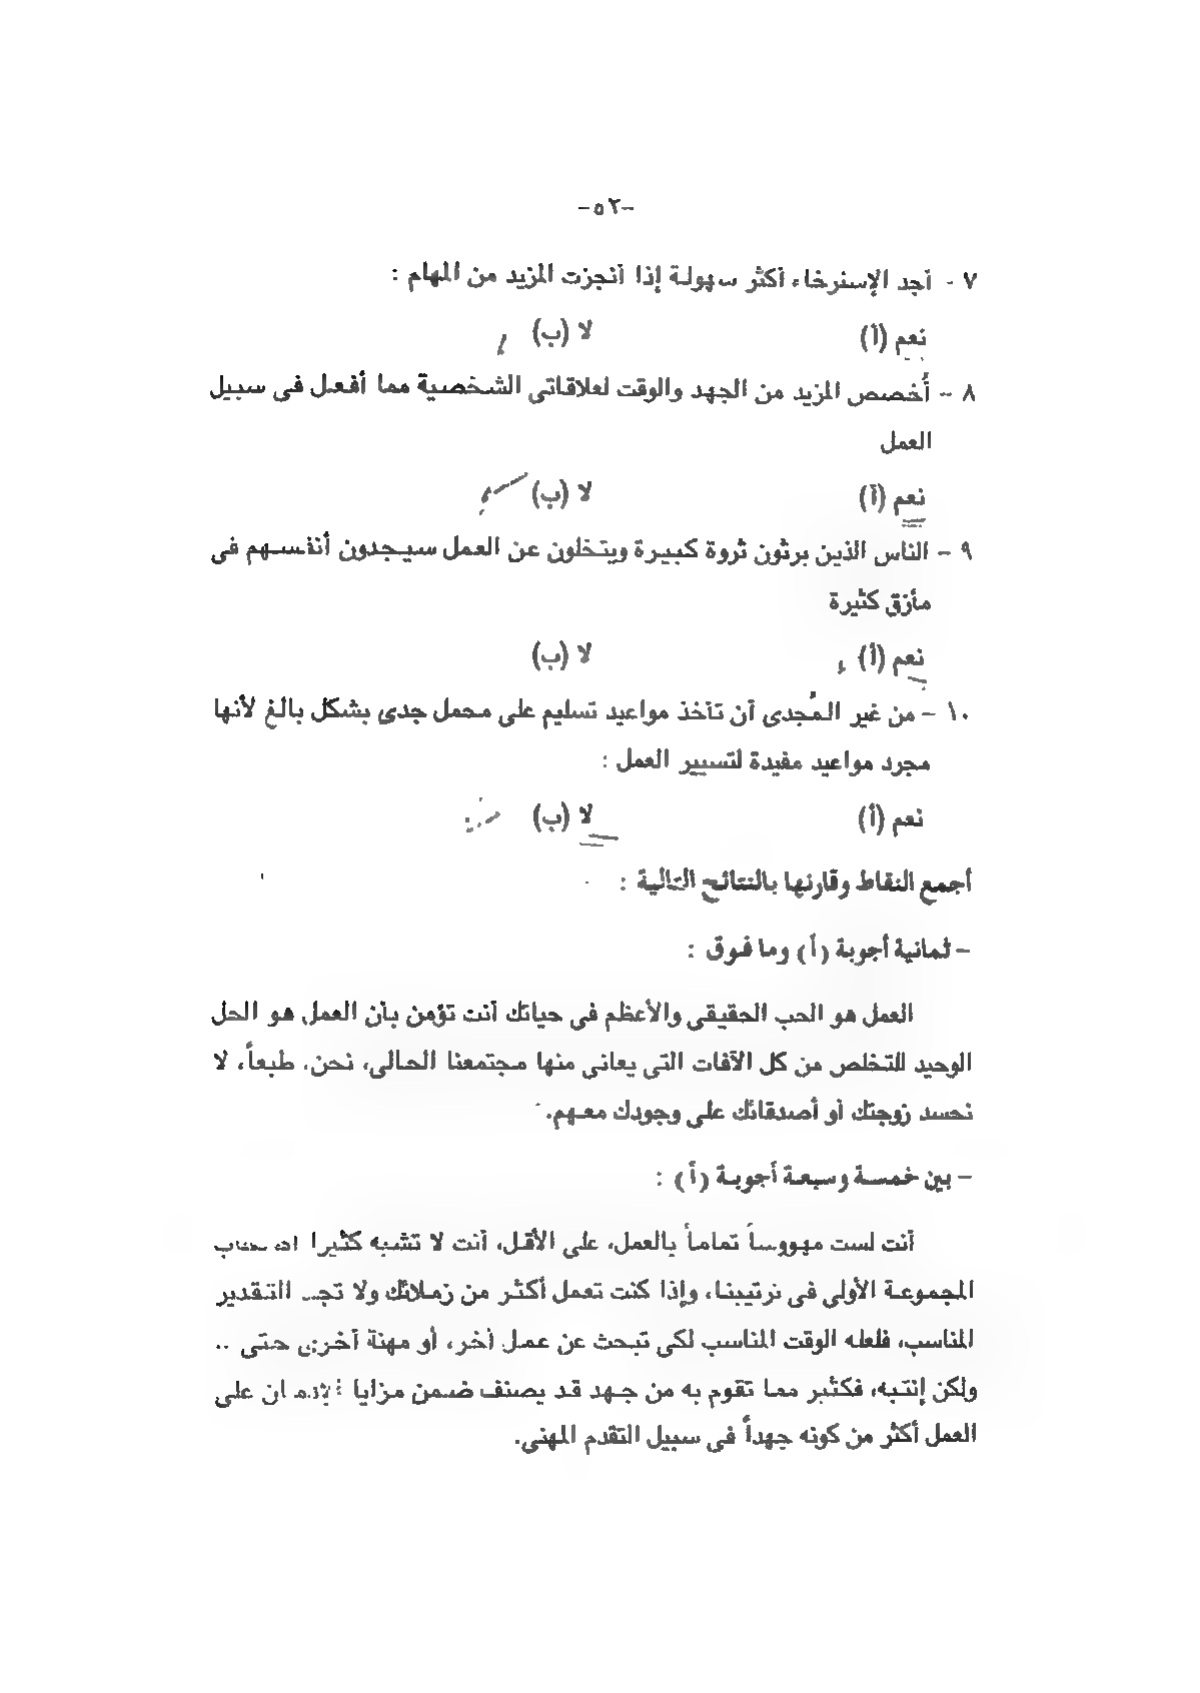 -٥٢-
٧ - أجد الإسترخاء أكثر سهولة إذا أنجزت المزيد من المهام :
نعم (أ) لا (ب)
٨ - أُخصص المزيد من الجهد والوقت لعلاقاتى الشخصية مما أفعل فى سبيل
العمل
نعم (أ) لا (ب)
٩ - الناس الذين يرثون ثروة كبيرة ويتخلون عن العمل سيجدون أنفسهم فى
مأزق كثيرة
نعم (أ) لا (ب)
١٠ - من غير المُجدى أن تأخذ مواعيد تسليم على محمل جدى بشكل بالغ لأنها
مجرد مواعيد مفيدة لتسيير العمل :
نعم (أ) لا (ب)
أجمع النقاط وقارنها بالنتائج التالية :
- ثمانية أجوبة (أ) وما فوق :
العمل هو الحب الحقيقى والأعظم فى حياتك أنت تؤمن بأن العمل هو الحل
الوحيد للتخلص من كل الآفات التى يعانى منها مجتمعنا الحالى، نحن، طبعاً، لا
نحسد زوجتك أو أصدقائك على وجودك معهم.
- بين خمسة وسبعة أجوبة (أ) :
أنت لست مهووساً تماماً بالعمل، على الأقل، أنت لا تشبه كثيرا
المجموعة الأولى فى ترتيبنا، وإذا كنت تعمل أكثر من زملائك ولا تجد التقدير
المناسب، فلعله الوقت المناسب لكى تبحث عن عمل أخر، أو مهنة أخرى حتى ..
ولكن إنتبه، فكثير مما تقوم به من جهد قد يصنف ضمن مزايا الإدمان على
العمل أكثر من كونه جهداً فى سبيل التقدم المهنى.